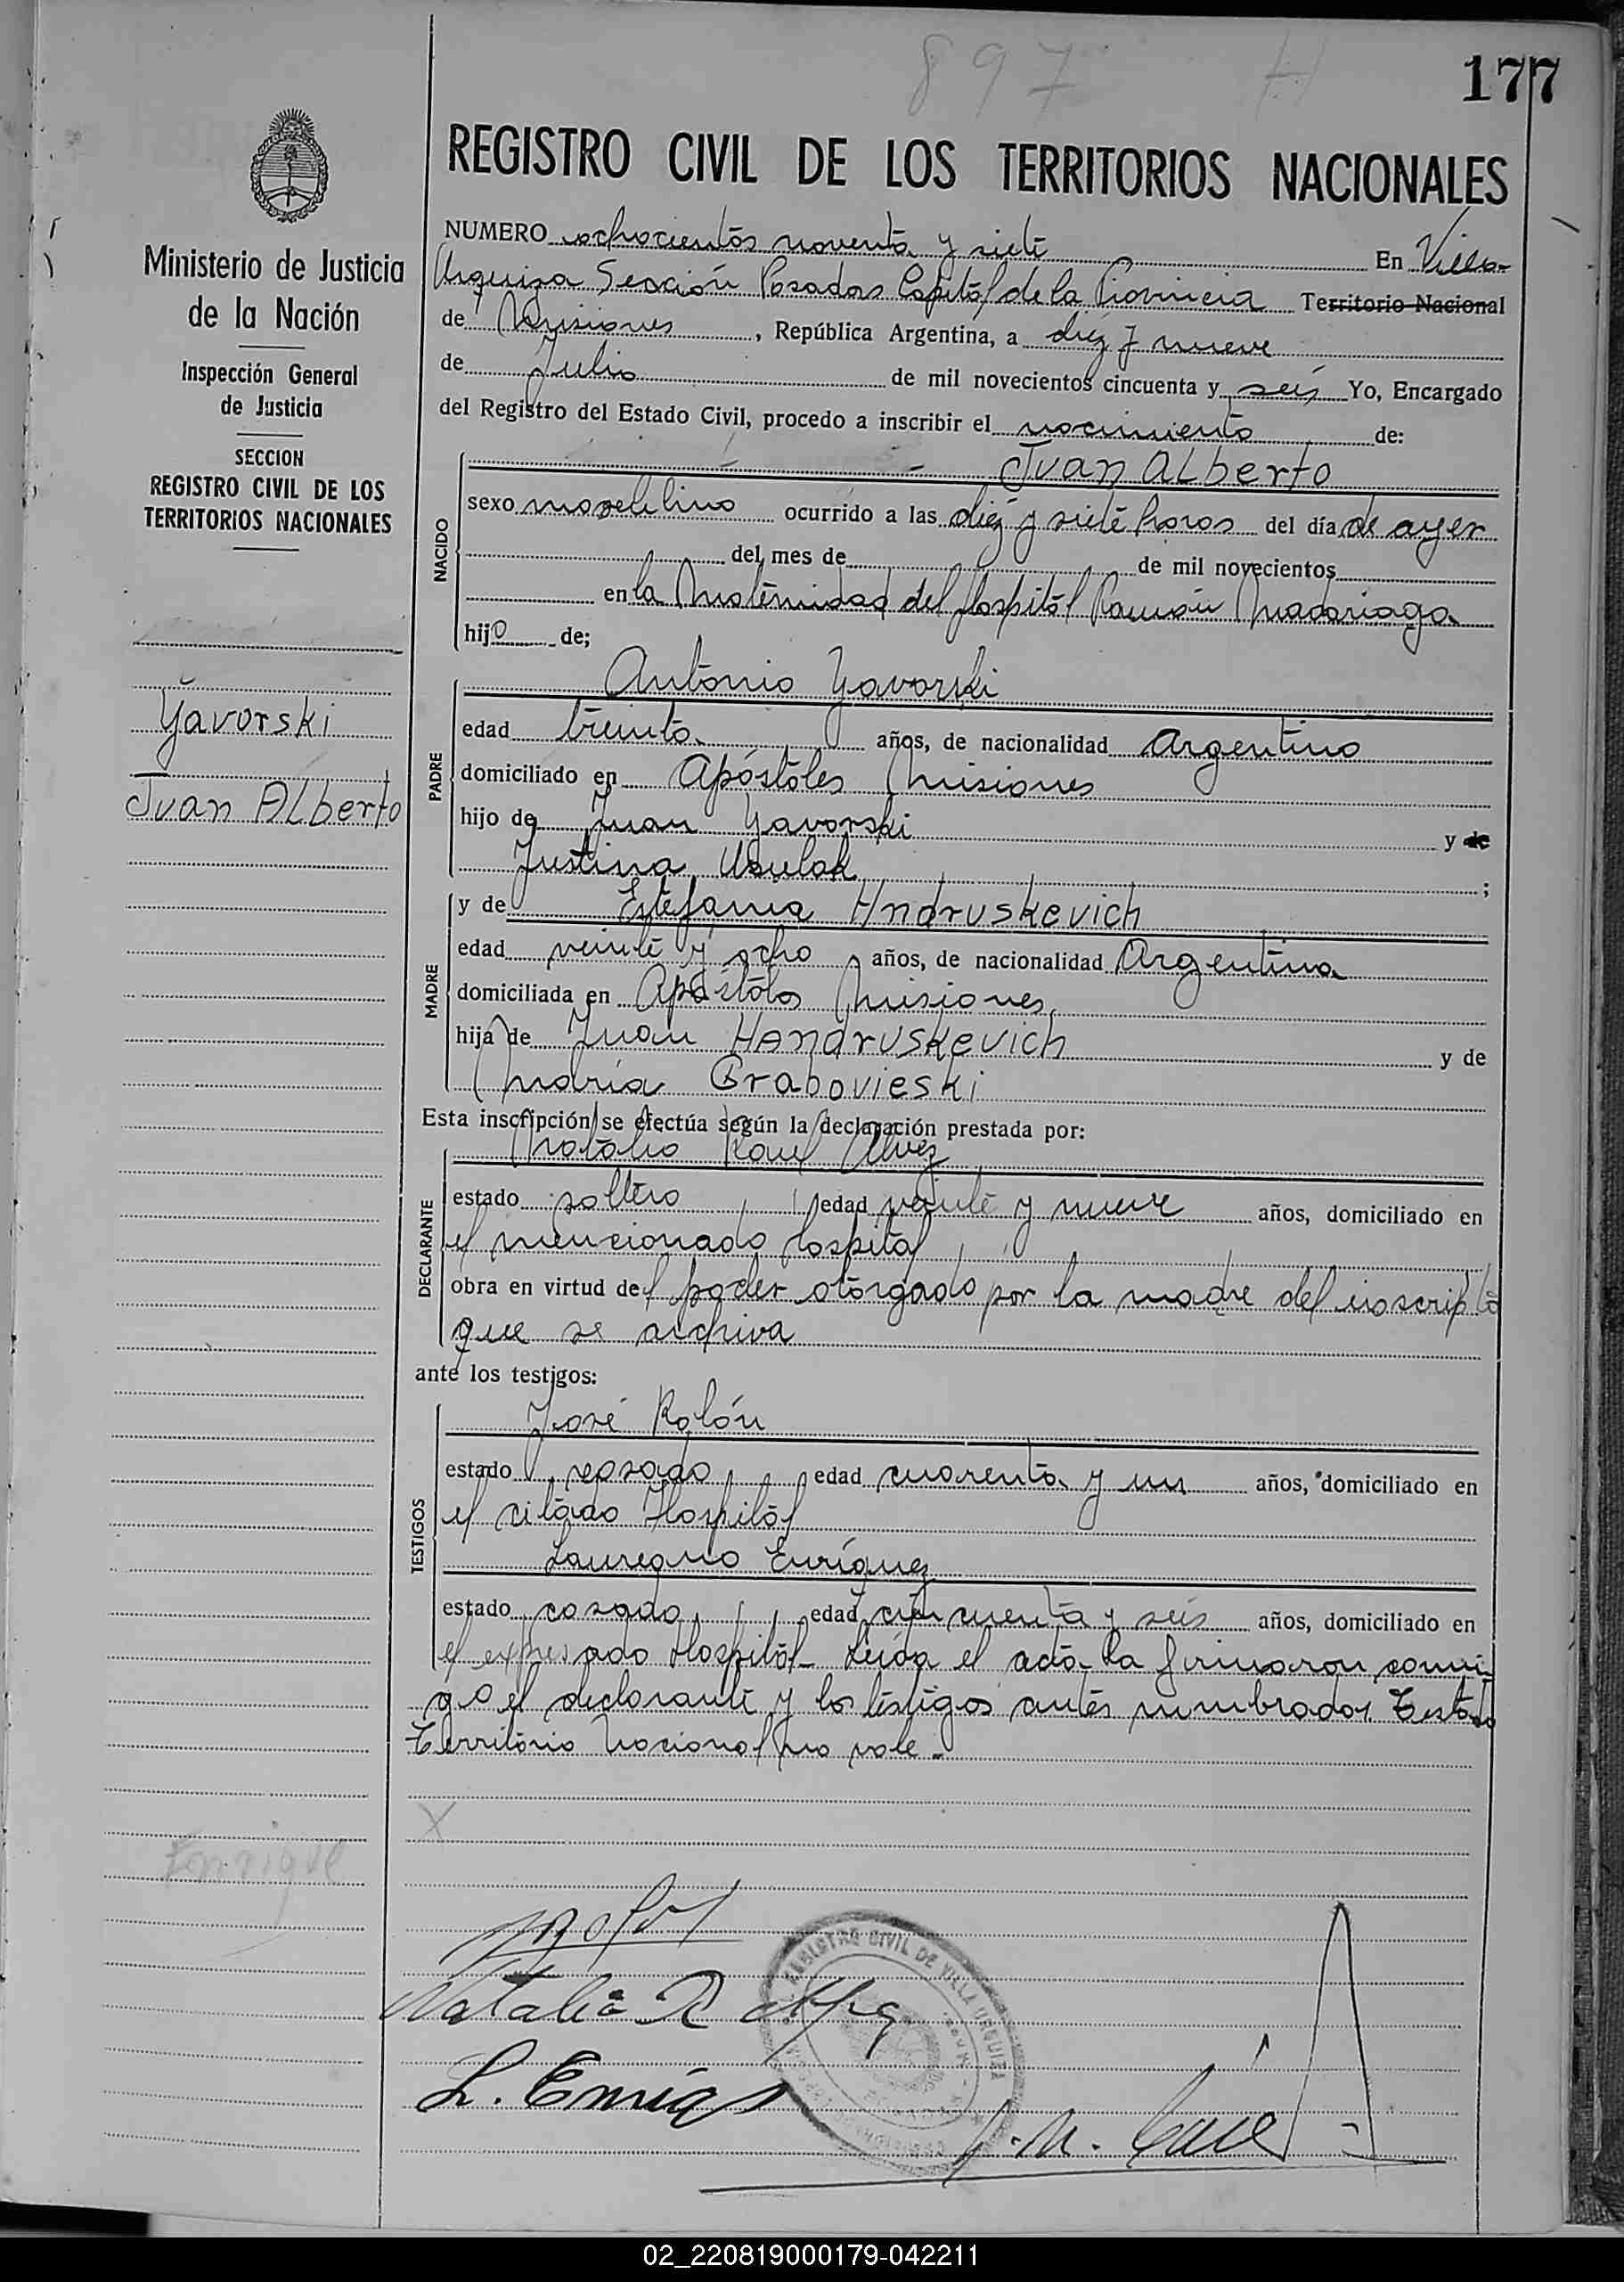 897
177
REGISTRO CIVIL DE LOS TERRITORIOS NACIONALES
Ministerio de Justicia
de la Nación
Inspección General
de Justicia
SECCION
REGISTRO CIVIL DE LOS
TERRITORIOS NACIONALES
Yavorski
Juan Alberto
Enrique
NUMERO ochocientos noventa y siete En Villa
Urquiza Sección Posadas Capital de la Provincia Territorio Nacional
de Misiones, República Argentina, a diez y nueve
de Julio de mil novecientos cincuenta y seis Yo, Encargado
del Registro del Estado Civil, procedo a inscribir el nacimiento de:
Juan Alberto
NACIDO
sexo masculino ocurrido a las diez y siete horas del día de ayer
del mes de de mil novecientos
en la Maternidad del Hospital Ramón Madariaga
hijo de;
PADRE
Antonio Yavorski
edad treinta años, de nacionalidad Argentino
domiciliado en Apóstoles Misiones
hijo de Juan Yavorski y de
Justina ;
MADRE
y de Estefania Andruskevich
edad veinte y ocho años, de nacionalidad Argentina
domiciliada en Apóstoles Misiones
hija de Juan Handruskevich y de
María Grabovieski
Esta inscripción se efectúa según la declaración prestada por:
DECLARANTE
Natalio Raul Alvez
estado soltero edad veinte y nueve años, domiciliado en
el mencionado hospital
obra en virtud del poder otorgado por la madre del inscripto
que se archiva
ante los testigos:
TESTIGOS
José Rolón
estado casado edad cuarenta y un años, domiciliado en
el citado Hospital
Laureano Enríquez
estado casado edad cincuenta y seis años, domiciliado en
el expresado Hospital. Leída el acta la firmaron conmi
go el declarante y los testigos antes nombrados. Testado
Territorio Nacional no vale.
X
Natalio R
L.
REGISTRO CIVIL DE VILLA URQUIZA
02_220819000179-042211